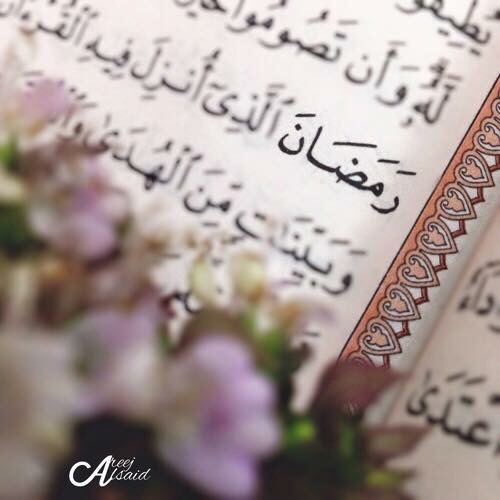 لَّهُۥ وَأَن تَصُومُوا۟
رَمَضَانَ ٱلَّذِىٓ أُنزِلَ فِيهِ ٱلْقُرْءَانُ
وَبَيِّنَٰتٍ مِّنَ ٱلْهُدَىٰ
ٱعْتَدَىٰ
Areej Alsaid